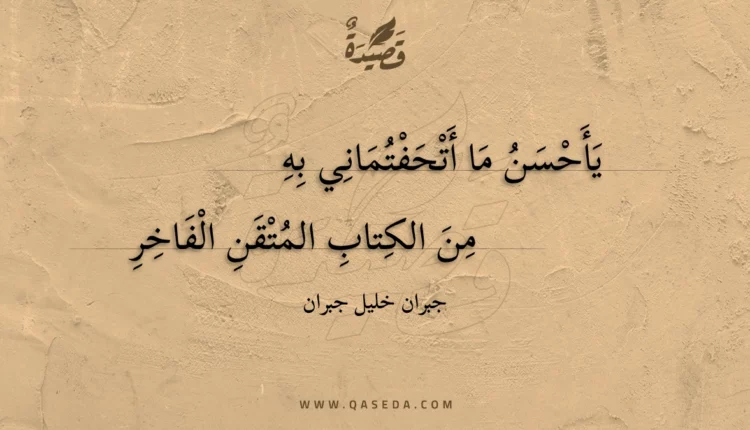 قَصِيْدَةٌ
يَأَحْسَنُ مَا أَتْحَفْتُمَانِي بِهِ
مِنَ الكِتابِ المُتْقَنِ الْفَاخِرِ
جبران خليل جبران
WWW.QASEDA.COM